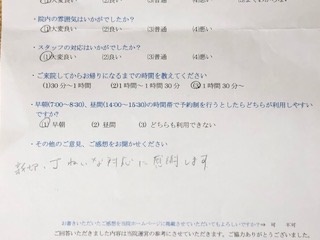 院内の雰囲気はいかがでしたか?
(1)大変良い (2)良い (3)普通 (4)悪い
・スタッフの対応はいかがでしたか?
(1)大変良い (2)良い (3)普通 (4)悪い
・ご来院してからお帰りになるまでの時間を教えてください
(1)30分~1時間 (2)1時間~1時間30分 (3)1時間30分~
・早朝(7:00~8:30)、昼間(14:00~15:30)の時間帯で予約制を行うとしたらどちらが利用しやすい
ですか?
(1)早朝 (2)昼間 (3)どちらも利用できない
・その他のご意見、ご感想をお聞かせください
親切、丁ねいな対応に感謝します
お書きいただいたご感想を当院ホームページに掲載させていただいてもよろしいですか?→ 可 不可
ご回答いただきました内容は当院運営の参考にさせていただきます。ご協力ありがとうございました。